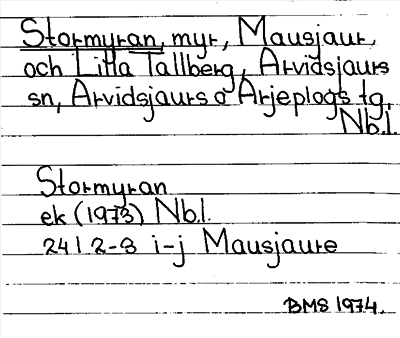 Stormyran, myr, Mausjaur,
och Lilla Tallberg, Arvidsjaurs
sn, Arvidsjaurs o Arjeplogs tg,
Nb.l.
Stormyran
ek (1973) Nb.l.
24 I 2-3 i-j Mausjaure
BMS 1974.